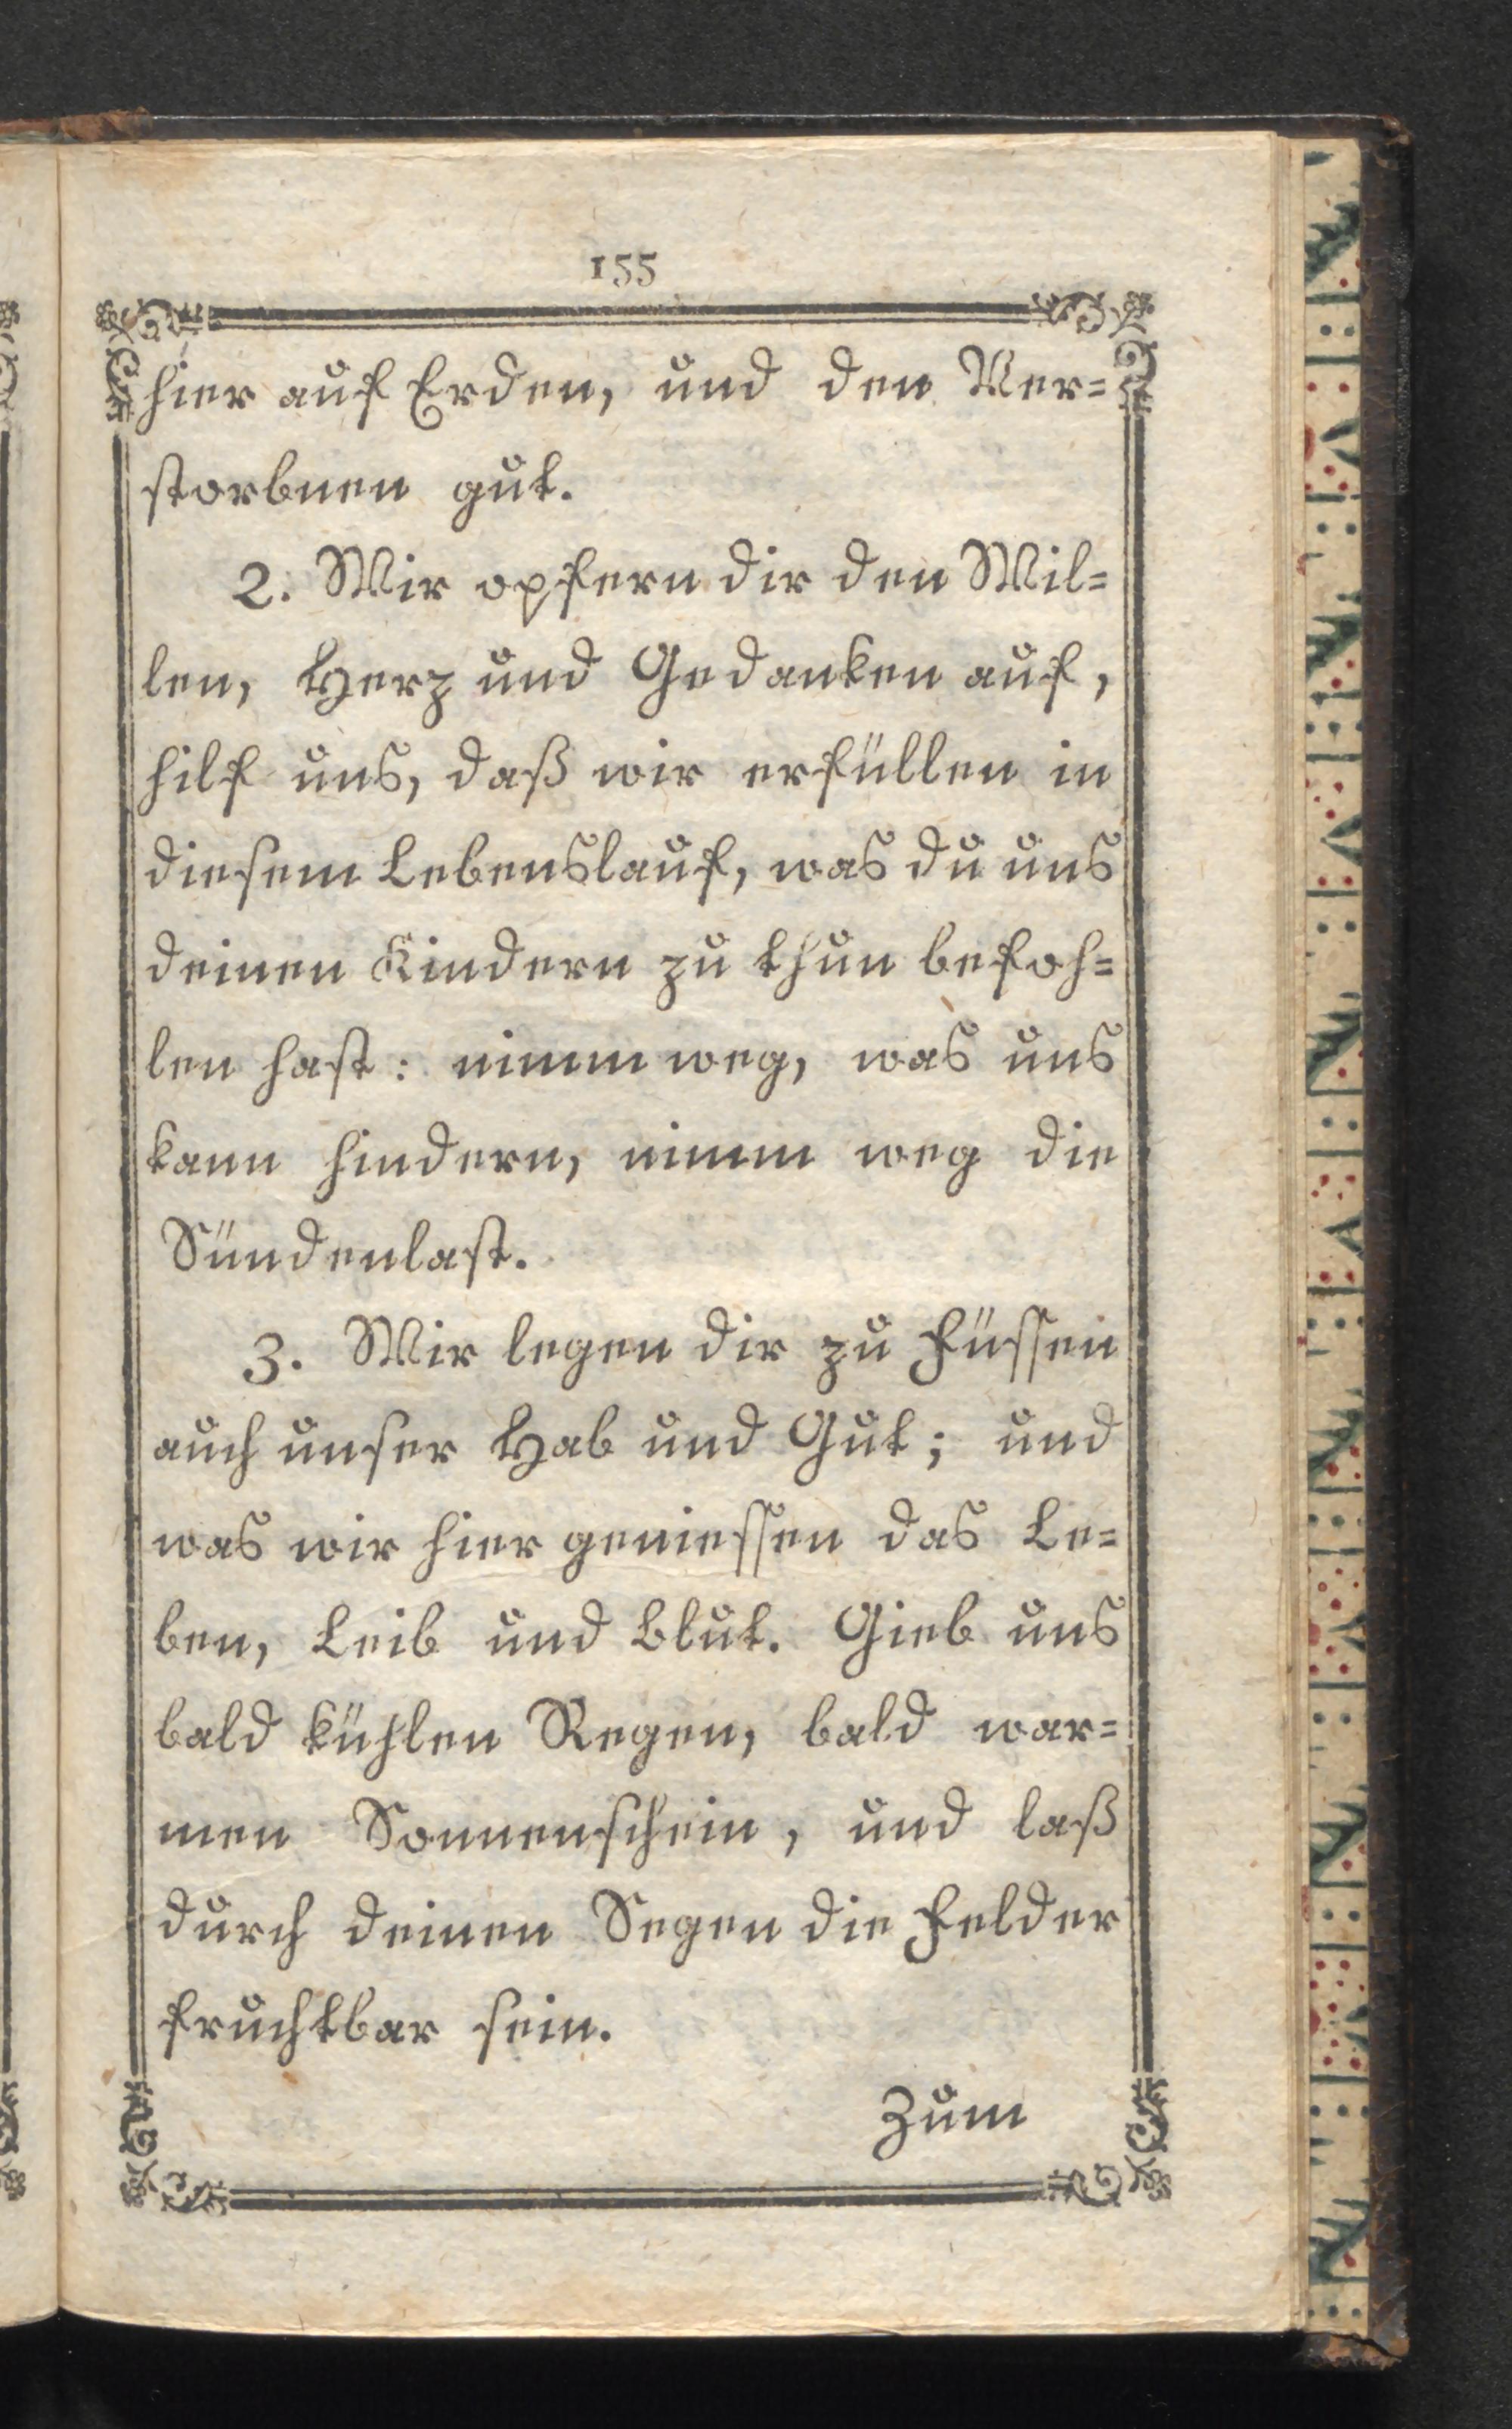 155
hier auf Erden, und den Ver=
storbnen gut.
2. Wir opfern dir den Wil=
len, Herz und Gedanken auf,
hilf uns, daß wir erfüllen in
diesem Lebenslauf, was du uns
deinen Kindern zu thun befoh=
len hast: nimm weg, was uns
kann hindern, nimm weg die
Sündenlast.
3. Wir legen dir zu Füssen
auch unser Hab und Gut; und
was wir hier geniessen das Le=
ben, Leib und Blut. Gieb uns
bald kühlen Regen, bald war=
men Sonnenschein, und laß
durch deinen Segen die Felder
fruchtbar sein.
Zum